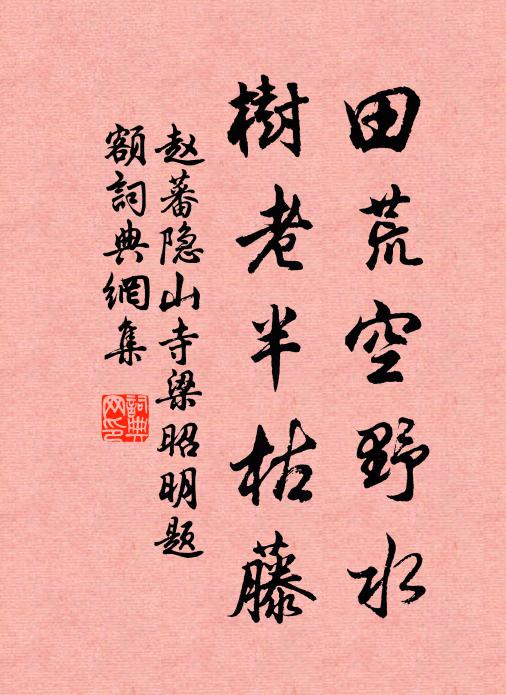 田荒空野水
樹老半枯藤
赵蕃隐山寺梁昭明题
额詞典網集
詞典网印